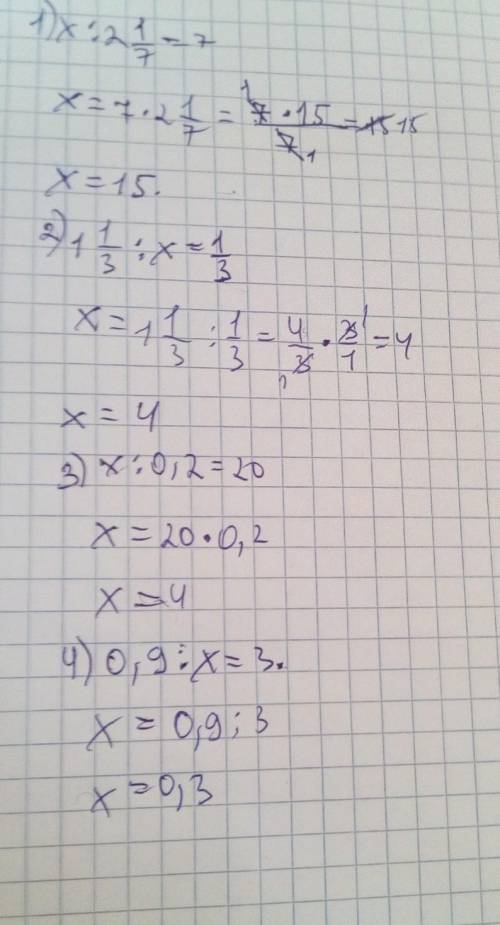 1) x : 2 1/7 = 7
x = 7 · 2 1/7 = 7 · 15 / 7 = 15 15
x = 15.
2) 1 1/3 : x = 1/3
x = 1 1/3 : 1/3 = 4/3 · 3/1 = 4
x = 4
3) x : 0,2 = 20
x = 20 · 0,2
x = 4
4) 0,9 : x = 3.
x = 0,9 : 3
x = 0,3